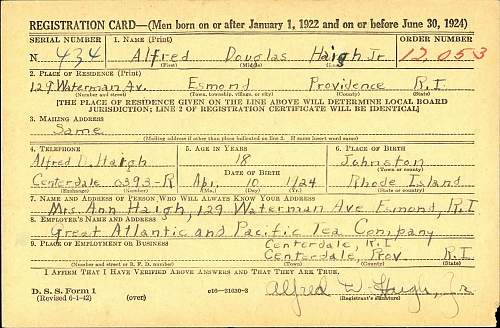 REGISTRATION CARD—(Men born on or after January 1, 1922 and on or before June 30, 1924)
SERIAL NUMBER 1. NAME (Print) ORDER NUMBER
N 434 Alfred Douglas Haigh Jr. 12,053
(First) (Middle) (Last)
2. PLACE OF RESIDENCE (Print)
129 Waterman Av. Esmond Providence R.I.
(Number and street) (Town, township, village, or city) (County) (State)
[THE PLACE OF RESIDENCE GIVEN ON THE LINE ABOVE WILL DETERMINE LOCAL BOARD
JURISDICTION; LINE 2 OF REGISTRATION CERTIFICATE WILL BE IDENTICAL]
3. MAILING ADDRESS
Same
(Mailing address if other than place indicated on line 2. If same insert word same)
4. TELEPHONE 5. AGE IN YEARS 6. PLACE OF BIRTH
Alfred D. Haigh 18 Johnston
DATE OF BIRTH (Town or county)
Centerdale 0393-R Apr. 10 1924 Rhode Island
(Exchange) (Number) (Mo.) (Day) (Yr.) (State or country)
7. NAME AND ADDRESS OF PERSON WHO WILL ALWAYS KNOW YOUR ADDRESS
Mrs. Ann Haigh, 129 Waterman Ave Esmond, R.I
8. EMPLOYER'S NAME AND ADDRESS
Great Atlantic and Pacific Tea Company
9. PLACE OF EMPLOYMENT OR BUSINESS Centerdale, R.I.
Centerdale, Prov R.I.
(Number and street or R. F. D. number) (Town) (County) (State)
I AFFIRM THAT I HAVE VERIFIED ABOVE ANSWERS AND THAT THEY ARE TRUE.
D. S. S. Form 1
(Revised 6-1-42) (over) c16—21630-2 Alfred D. Haigh, Jr.
(Registrant's signature)